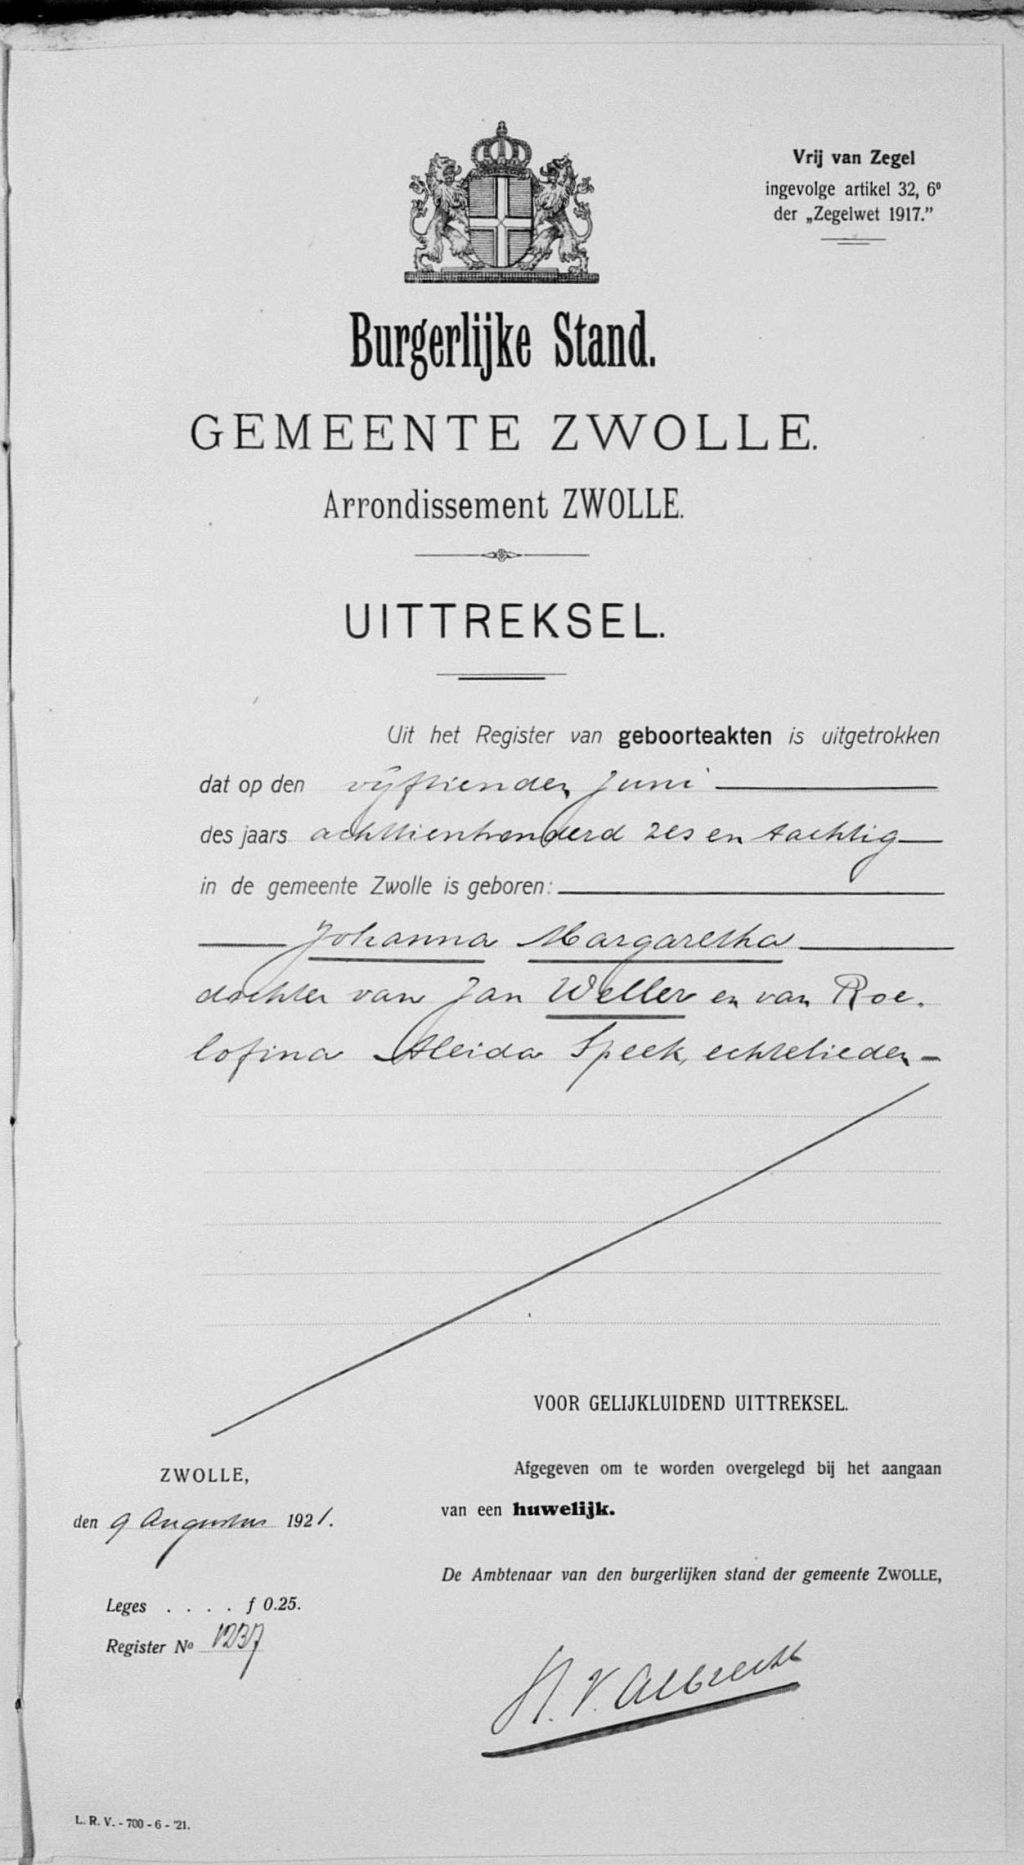 Vrij van Zegel
ingevolge artikel 32, 6º
der „Zegelwet 1917.”
Burgerlijke Stand.
GEMEENTE ZWOLLE.
Arrondissement ZWOLLE.
UITTREKSEL.
Uit het Register van geboorteakten is uitgetrokken
dat op den vijftienden Juni
des jaars achttienhonderd zes en tachtig
in de gemeente Zwolle is geboren:
Johanna Margaretha
dochter van Jan Weller en van Roe-
lofina Aleida Speek, echtelieden
VOOR GELIJKLUIDEND UITTREKSEL.
ZWOLLE,
Afgegeven om te worden overgelegd bij het aangaan
den 9 Augustus 1921.
van een huwelijk.
De Ambtenaar van den burgerlijken stand der gemeente ZWOLLE,
Leges . . . . f 0.25.
Register Nº 1237
V. Albrecht
L. R. V. - 700 - 6 - '21.